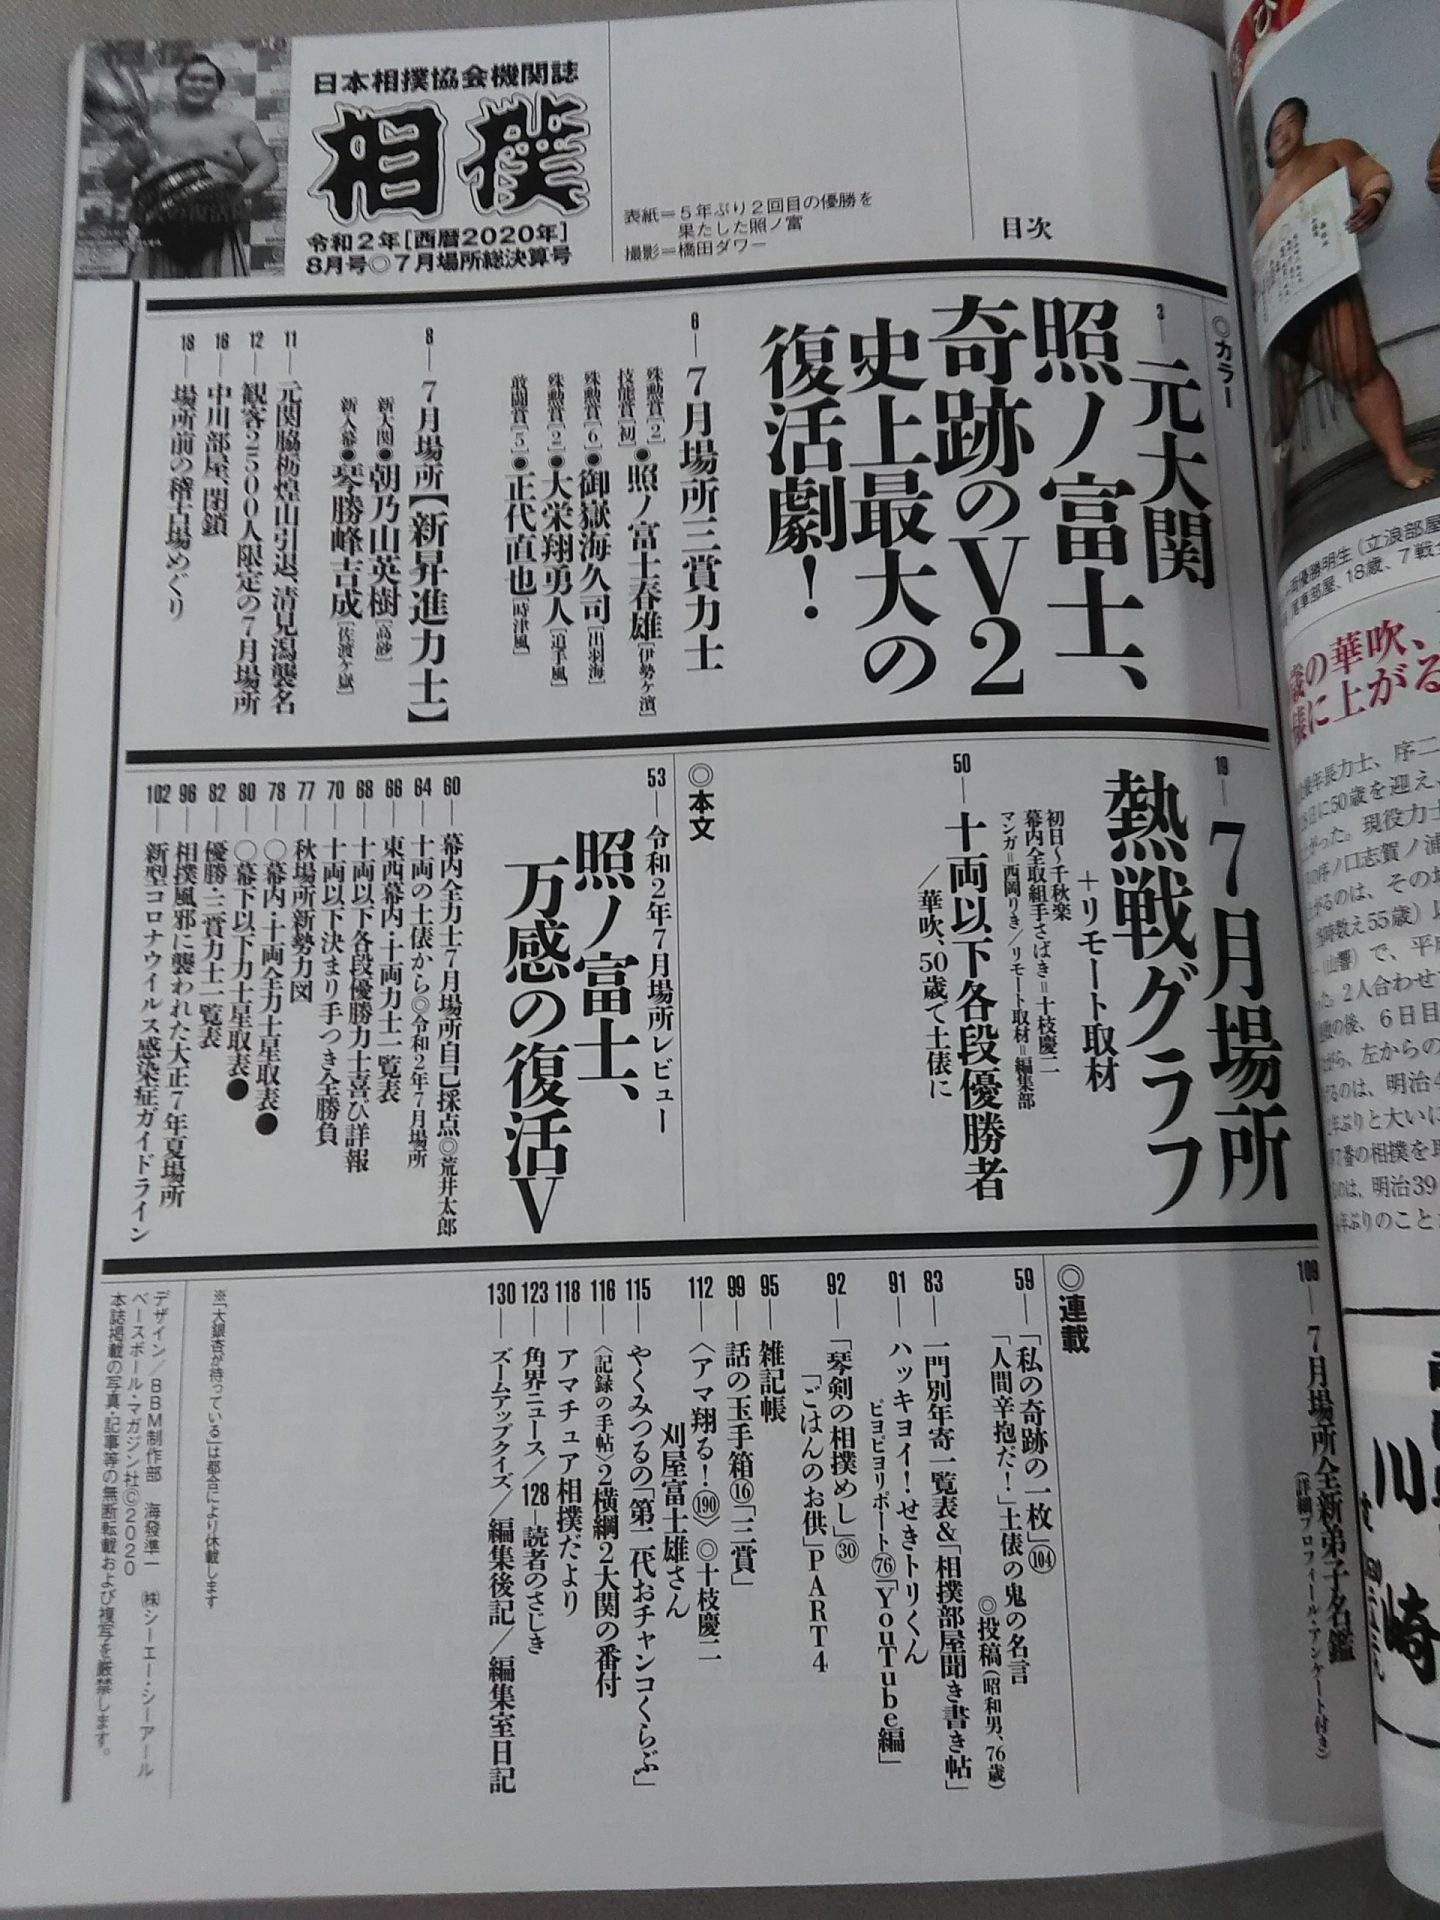 日本相撲協会機関誌
相撲
令和2年[西暦2020年]
8月号◎7月場所総決算号
表紙＝5年ぶり2回目の優勝を
果たした照ノ富
撮影＝橋田ダワー
目次
◎カラー
3―元大関
照ノ富士、
奇跡のV2
史上最大の
復活劇！
6―7月場所三賞力士
殊勲賞[2]
技能賞[初]●照ノ富士春雄[伊勢ケ濱]
殊勲賞[6]●御嶽海久司[出羽海]
殊勲賞[2]●大栄翔勇人[追手風]
敢闘賞[5]●正代直也[時津風]
8―7月場所【新昇進力士】
新大関●朝乃山英樹[高砂]
新入幕●琴勝峰吉成[佐渡ケ嶽]
11―元関脇栃煌山引退、清見潟襲名
12―観客2500人限定の7月場所
16―中川部屋、閉鎖
18―場所前の稽古場めぐり
19―7月場所
熱戦グラフ
＋リモート取材
初日～千秋楽
幕内全取組手さばき＝十枝慶二
マンガ＝西岡りき／リモート取材＝編集部
50―十両以下各段優勝者
／華吹、50歳で土俵に
◎本文
53―令和2年7月場所レビュー
照ノ富士、
万感の復活V
60―幕内全力士7月場所自己採点◎荒井太郎
64―十両の土俵から◎令和2年7月場所
66―東西幕内・十両力士一覧表
68―十両以下各段優勝力士喜び詳報
70―十両以下決まり手つき全勝負
77―秋場所新勢力図
78―○幕内・十両全力士星取表●
80―○幕下以下力士星取表●
82―優勝・三賞力士一覧表
96―相撲風邪に襲われた大正7年夏場所
102―新型コロナウイルス感染症ガイドライン
109―7月場所全新弟子名鑑
(詳細プロフィール・アンケート付き)
◎連載
59―「私の奇跡の一枚」104
「人間辛抱だ！」土俵の鬼の名言
◎投稿(昭和男、76歳)
83―一門別年寄一覧表&「相撲部屋聞き書き帖」
91―ハッキヨイ！せきトリくん
ピヨピヨリポート76「YouTube編」
92―「琴剣の相撲めし」㉚
「ごはんのお供」PART4
95―雑記帳
99―話の玉手箱⑯「三賞」
112―〈アマ翔る！190〉◎十枝慶二
刈屋富士雄さん
115―やくみつるの「第二代おチャンコくらぶ」
116―〈記録の手帖〉2横綱2大関の番付
118―アマチュア相撲だより
123―角界ニュース／128―読者のさじき
130―ズームアップクイズ／編集後記／編集室日記
※「大銀杏が待っている」は都合により休載します
デザイン／BBM制作部　海發準一　㈱シーエー・シーアール
ベースボール・マガジン社©2020
本誌掲載の写真・記事等の無断転載および複写を厳禁します。
優勝明生（立浪部屋
尾車部屋、18歳、7戦全
歳の華吹、
様に上がる
年長力士、序二
に50歳を迎え、
がった。現役力士
序ノ口志賀ノ浦
がるのは、その
当時数え55歳）以
(山響)で、平
った。2人合わせ
の後、6日目
がら、左からの
るのは、明治4
年ぶりと大いに
7番の相撲を
のは、明治39
年ぶりのこと
川
崎